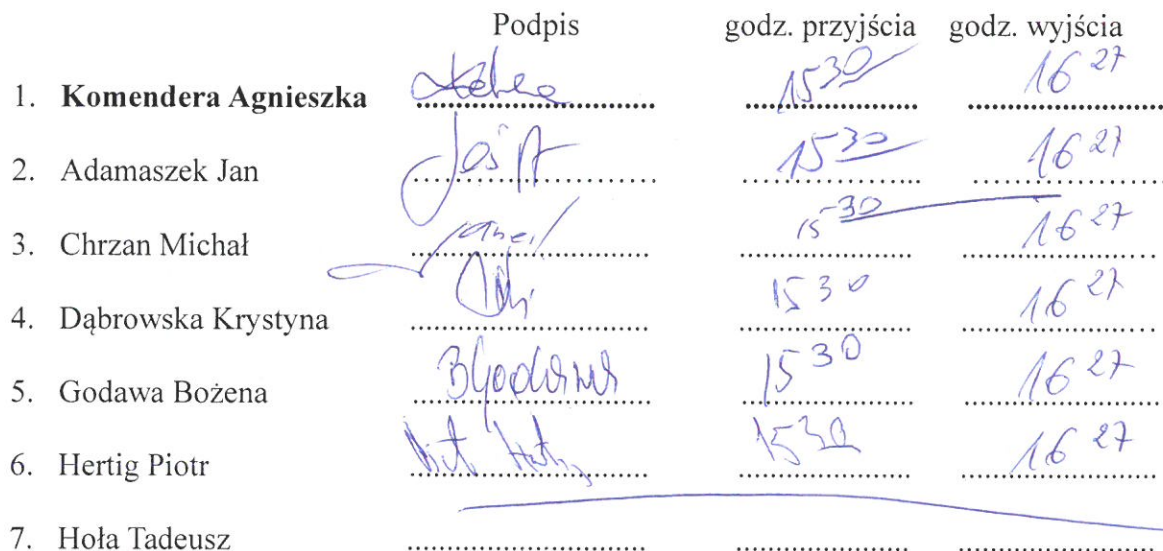 Podpis godz. przyjścia godz. wyjścia
1. Komendera Agnieszka 15 30 16 27
2. Adamaszek Jan 15 30 16 27
3. Chrzan Michał 15 30 16 27
4. Dąbrowska Krystyna 15 30 16 27
5. Godawa Bożena BGodawa 15 30 16 27
6. Hertig Piotr 15 30 16 27
7. Hoła Tadeusz